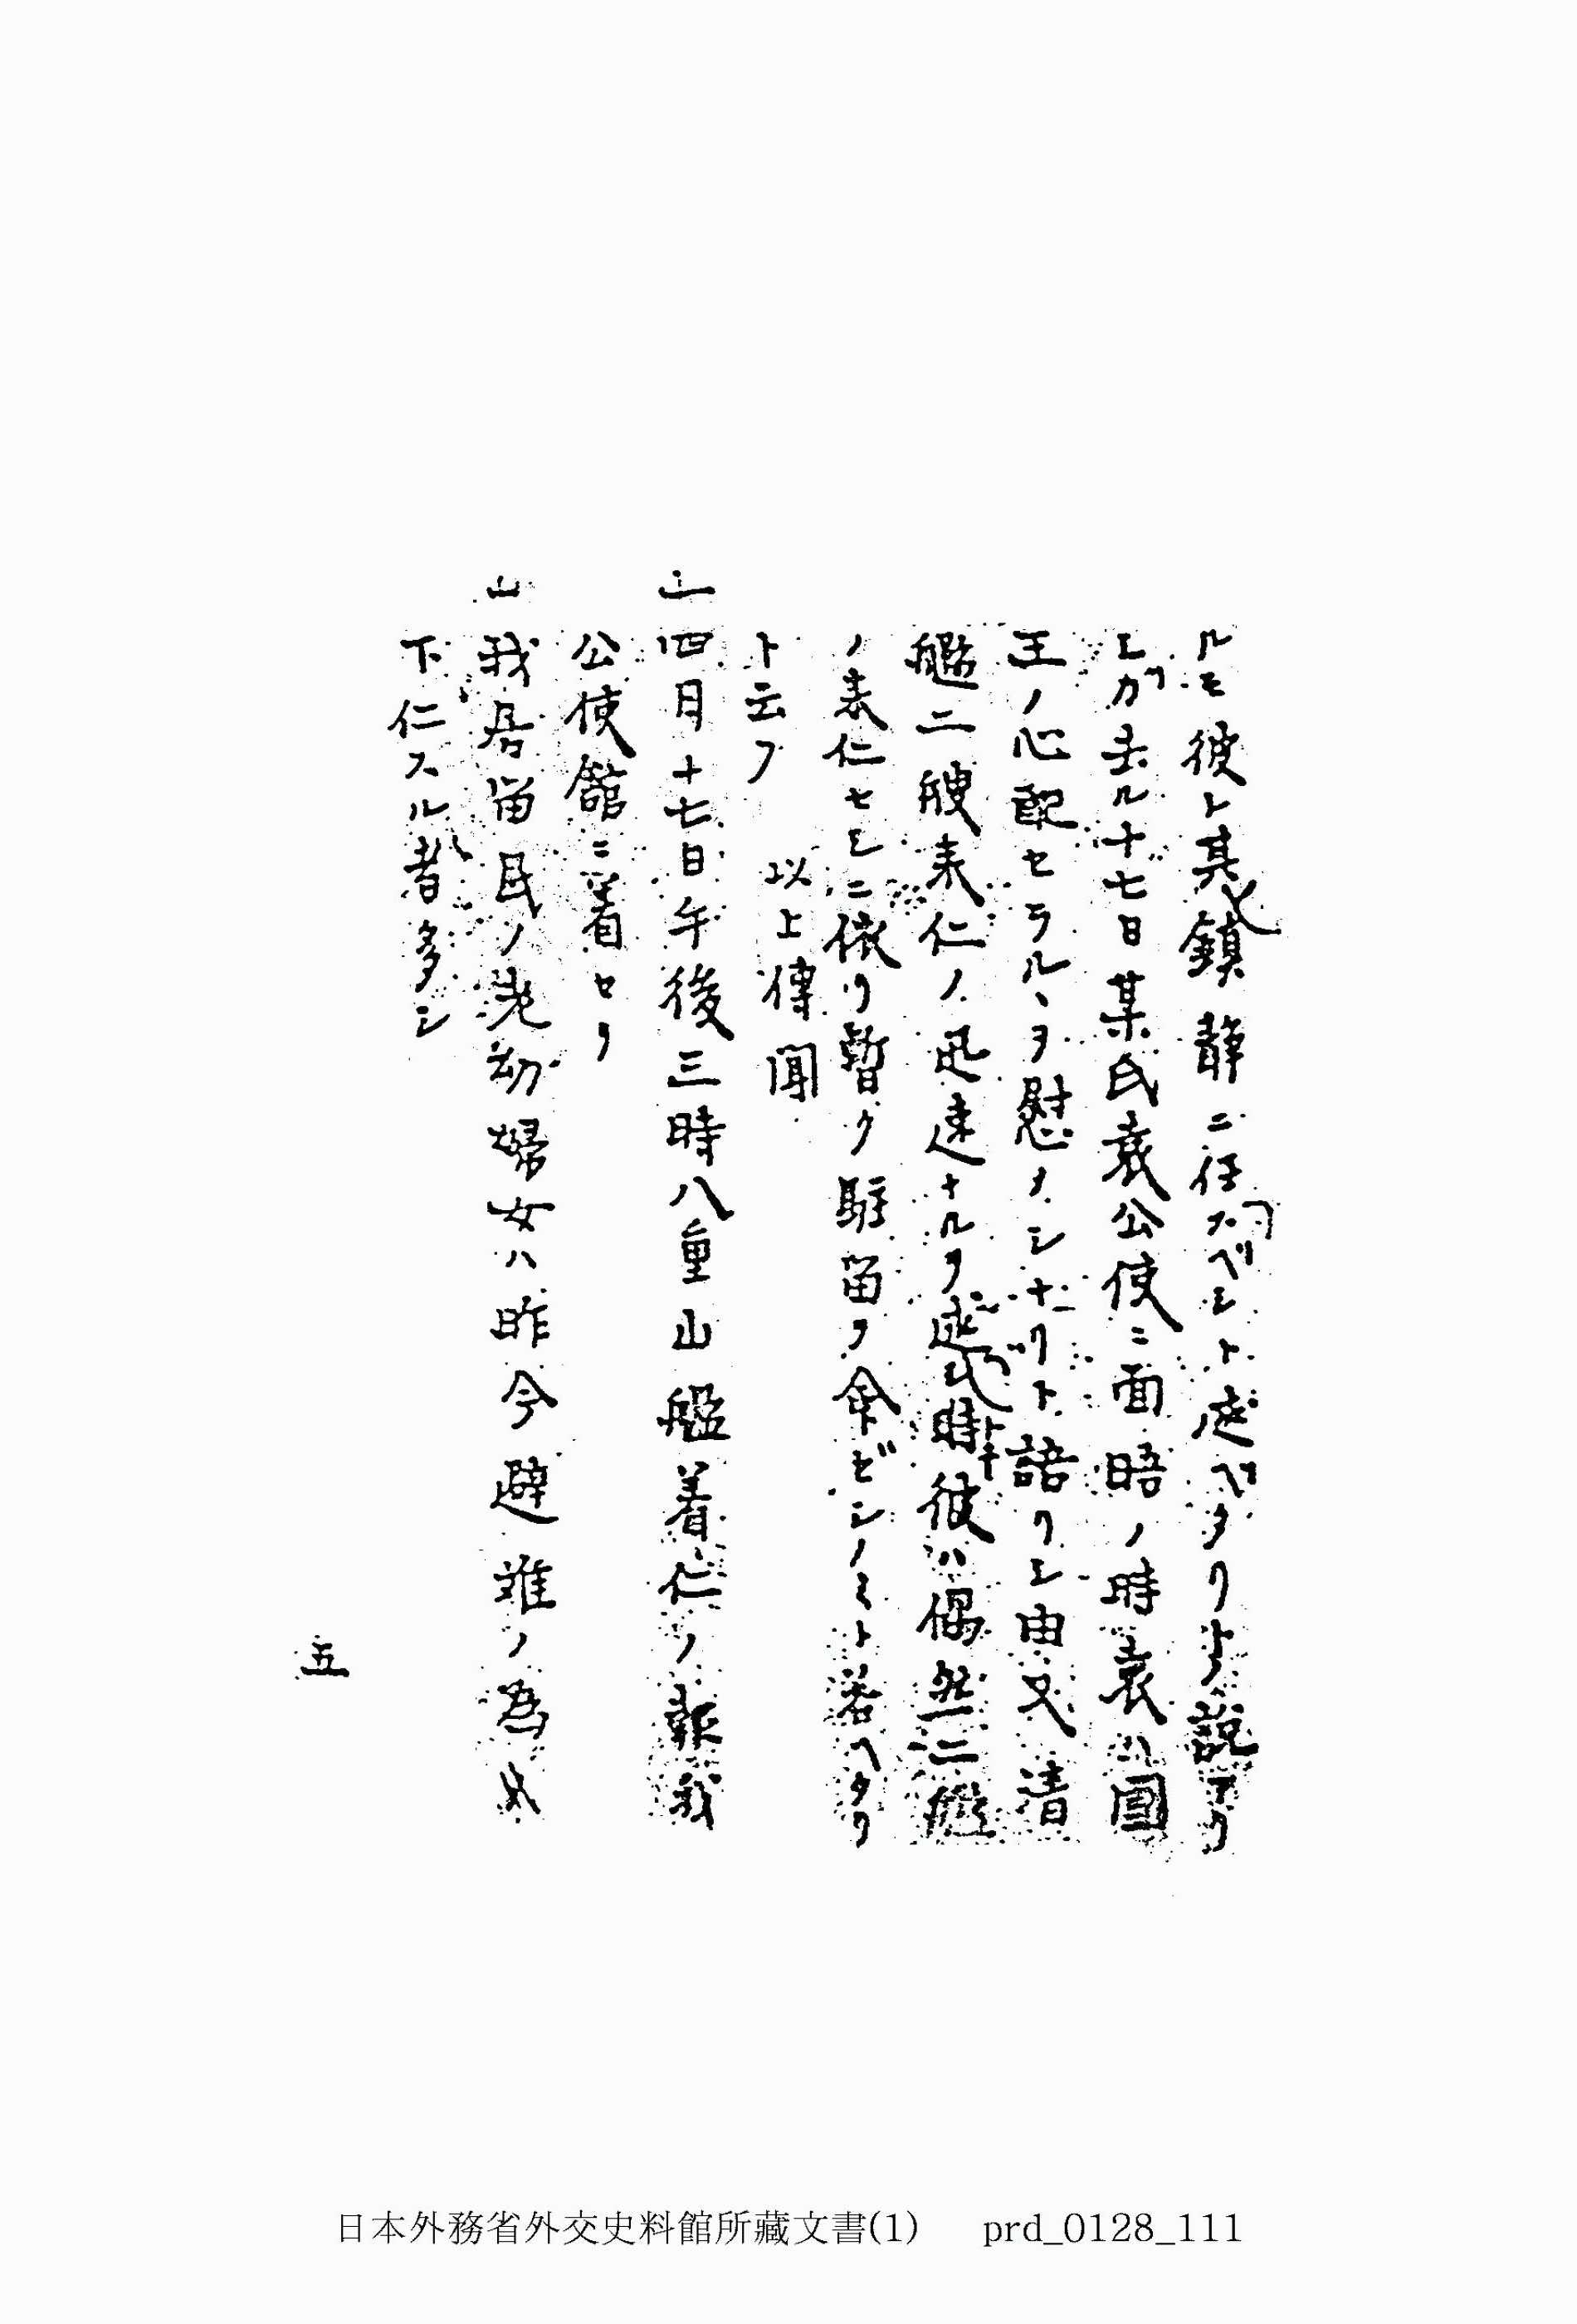 ルモ彼レ其鎮静ニ任スベシト述ベタリト說ヲク
シガ去ル十七日某氏袁公使ニ面晤ノ時袁ハ國
王ノ心配セラルヽヲ慰メシナリト語リシ由又淸
艦二艘来仁ノ迅速ナルヲ述シ時彼ハ偶然二艦
ノ来仁セシニ依リ暫ク駐留ヲ命ゼシノミト答ヘタリ
ト云フ　以上傳聞
一四月十七日午後三時八重山艦着仁ノ報我
公使館ニ着セリ
一我居留民ノ老幼婦女ハ昨今避難ノ為メ
下仁スル者多シ
五
日本外務省外交史料館所藏文書(1) prd_0128_111